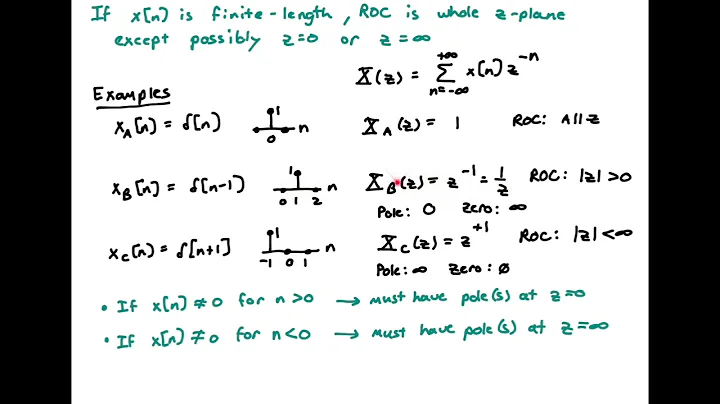 If x[n] is finite-length, ROC is whole z-plane
except possibly z=0 or z=∞
X(z) = +∞ Σ n=-∞ x[n] z^-n
Examples
x_A[n] = δ[n] 1 0 n X_A(z) = 1 ROC: All z
x_B[n] = δ[n-1] 1 0 1 2 n X_B(z) = z^-1 = 1/z ROC: |z|>0
Pole: 0 Zero: ∞
x_C[n] = δ[n+1] 1 -1 0 1 n X_C(z) = z^+1 ROC: |z|<∞
Pole: ∞ Zero: 0
• If x[n] ≠ 0 for n>0 → must have pole(s) at z=0
• If x[n] ≠ 0 for n<0 → must have pole(s) at z=∞